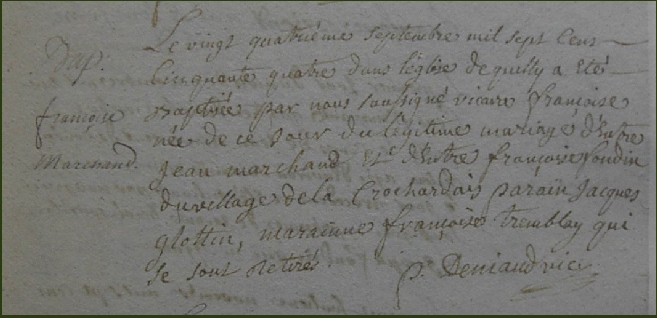 Bap:
françoise
Marchand.
Le vingt quatriéme septembre mil sept Cens
Cinquante quatre dans léglise de quilly a eté
Baptisée par nous soussigné vicaire françoise
née de ce jour du légitime mariage d'Entre
Jean marchand Et d'Entre françoise foudin
du village de la Crochardais parain Jacques
glottin, maraine françoise tremblay qui
se sont retirés.
p. Deniaud vic.